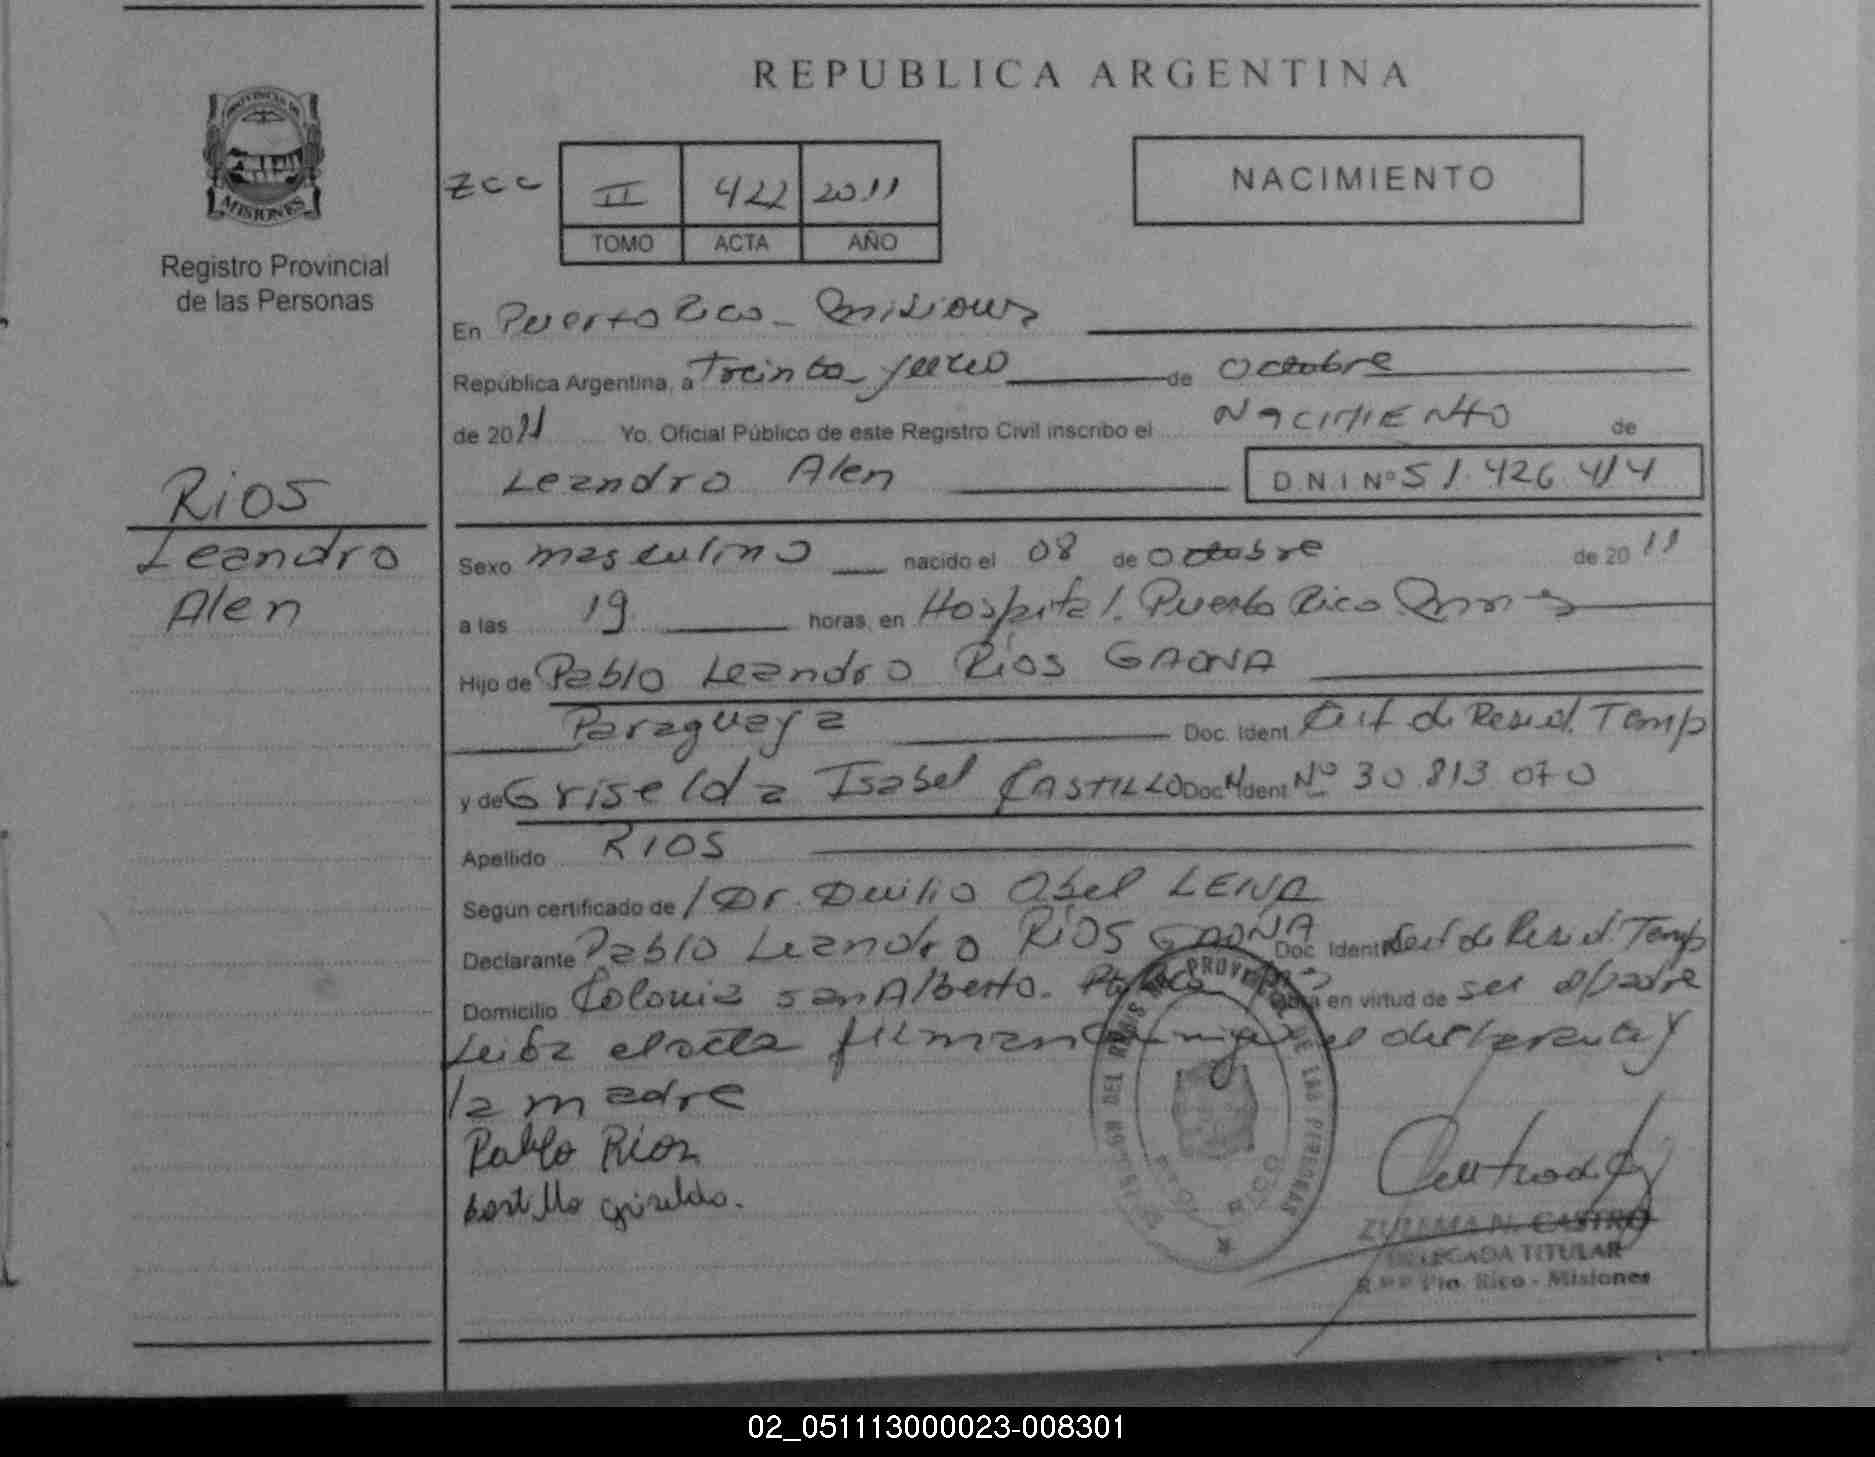 REPUBLICA ARGENTINA
PROVINCIA DE
MISIONES
Registro Provincial
de las Personas
zcc II 422 2011
TOMO ACTA AÑO
NACIMIENTO
En Puerto Rico - Misiones
República Argentina, a Treinta y uno de Octubre
de 2011 Yo, Oficial Público de este Registro Civil inscribo el NACIMIENTO de
Leandro Alen D.N.I Nº 51.426.414
RIOS
Leandro
Alen
Sexo masculino nacido el 08 de Octubre de 2011
a las 19 horas, en Hospital. Puerto Rico
Hijo de Pablo Leandro Ríos GAONA
Paraguaya Doc. Ident. Cert de Resid. Temp
y de Griselda Isabel CASTILLO Doc. Ident Nº 30.813.070
Apellido RIOS
Según certificado de Dr. Duilio Abel LEIVA
Declarante Pablo Leandro RÍOS GAONA Doc. Ident Cert de Resid. Temp
Domicilio Colonia San Alberto. Obra en virtud de ser el padre
Leída el acta firman el declarante y
la madre
Pablo Rios
Castillo Griselda.
ZULEMA N. CASTRO
DELEGADA TITULAR
R.P.P. Pto. Rico - Misiones
02_051113000023-008301